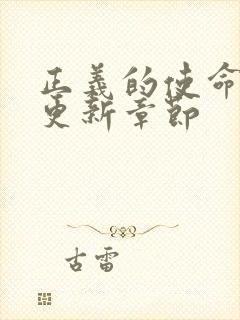 正義的使命
更新章節
古雷